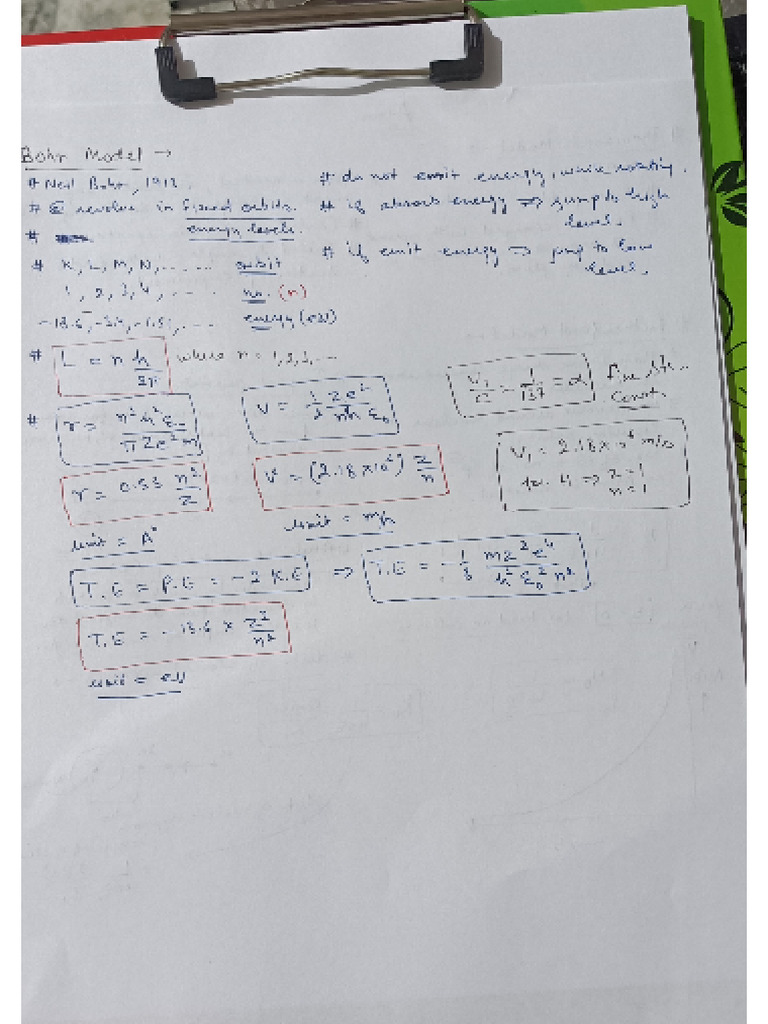 Bohr Model →
# Neil Bohr, 1913.
# e revolve in fixed orbits.
energy levels.
#
# K, L, M, N, ...... orbit
1, 2, 3, 4, ...... no. (n)
-13.6, -3.4, -1.51, ... energy (eV)
# do not emit energy, while rotating.
# if absorb energy ⇒ jump to high
level.
# if emit energy ⇒ jump to low
level.
# L = n h/2π where n = 1, 2, 3, ...
# r = n²h²ε₀/πZe²m
V = 1/2 Ze²/nh ε₀
V₁/c = 1/137 = α Fine Str..
Const.
r = 0.53 n²/Z
unit = A°
V = (2.18 × 10⁶) Z/n
unit = m/s
V₁ = 2.18 × 10⁶ m/s
for H ⇒ Z = 1
n = 1
T.E = P.E = -2 K.E ⇒ T.E = -1/8 mZ²e⁴/h²ε₀²n²
T.E = -13.6 × Z²/n²
unit = eV